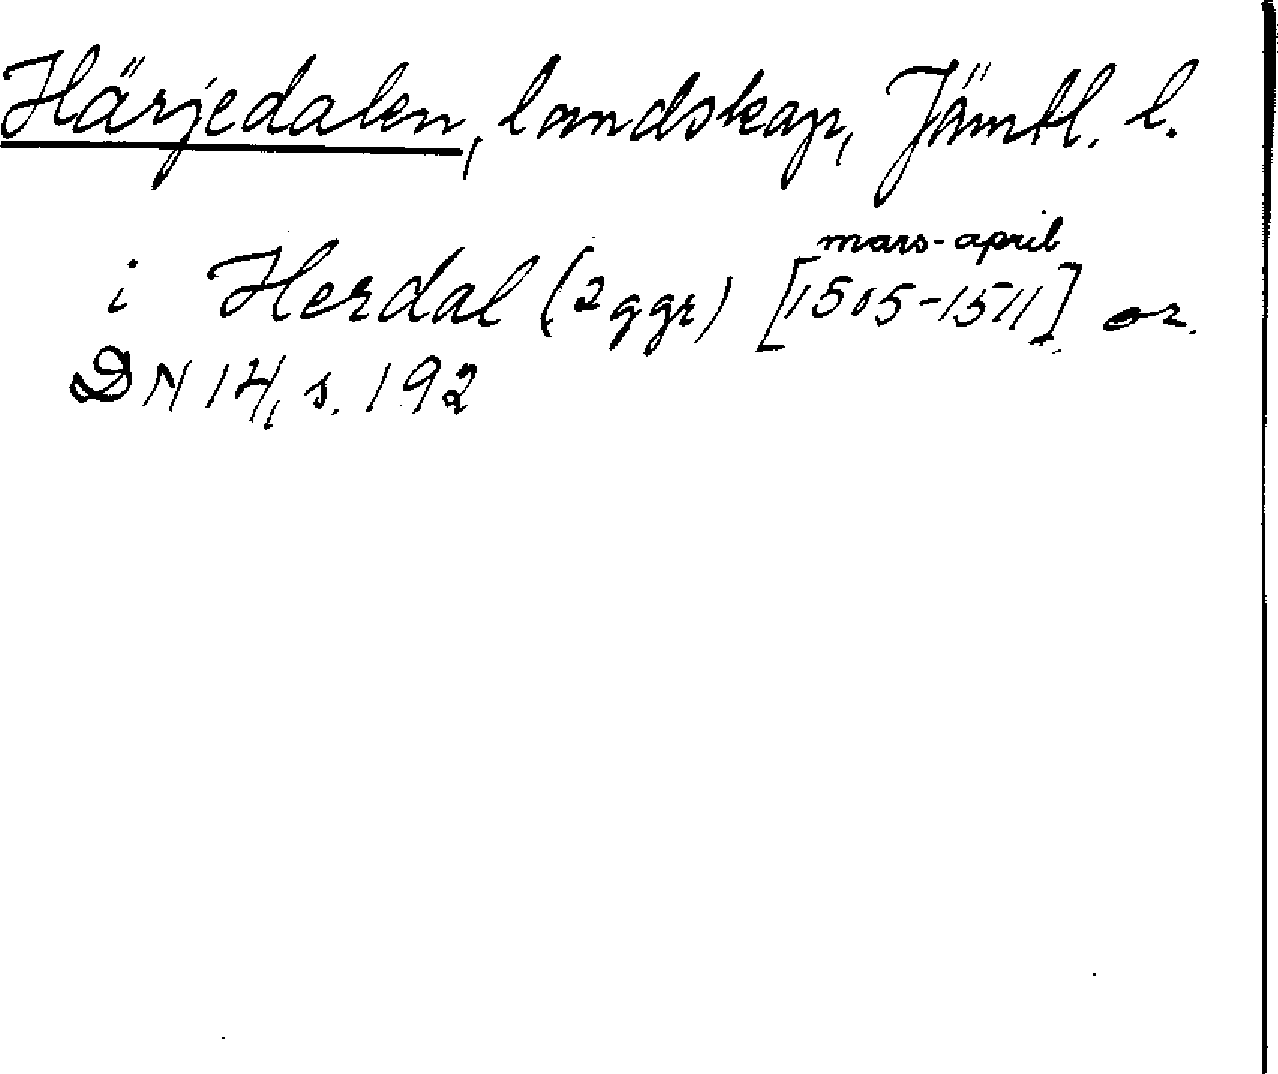 Härjedalen, landskap, Jämtl. l.
mars-april
i Herdal (2 ggr) [1505-1511] or.
DN 14, s. 192